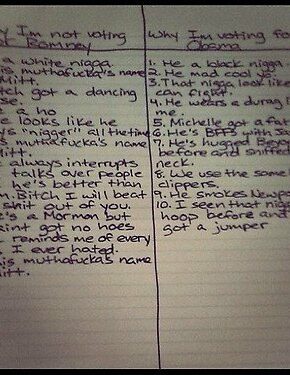 y I'm not voting
Romney
a white nigga
is muthafucka's name
Mitt.
tch got a dancing
se.
a ho
e looks like he
ys "nigger" all the time
s muthafucka's name
Mitt.
always interrupts
talks over people
he's better than
. Bitch I will beat
shit out of you.
e's a Mormon but
aint got no hoes
reminds me of every
I ever hated.
is muthafucka's name
Mitt.
Why I'm voting fo
Obama
1. He a black nigga
2. He mad cool yo.
3. That nigga look like
can fight.
4. He wears a durag l
me.
5. Michelle got a fat
6. He's BFFs with Ja
7. He's hugged Beyon
before and sniffed
neck.
8. We use the same
clippers.
9. He smokes Newpo
10. I seen that nigg
hoop before and
got a jumper